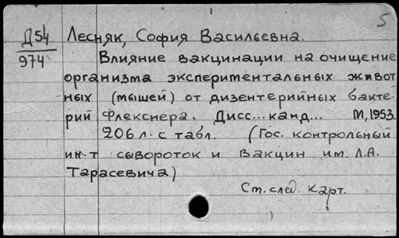 5
Д54 Лесняк, София Васильевна.
974 Влияние вакцинации на очищение
организма экспериментальных живот
ных (мышей) от дизентерийных бакте
рий Флекснера. Дисс...канд... М,1953.
206л. с табл. (Гос. контрольный
ин-т сывороток и вакцин им. Л.А.
Тарасевича)
Ст. след. карт.